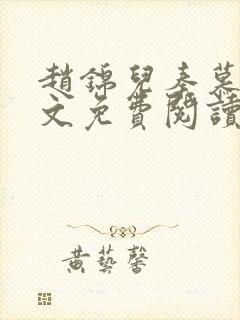 趙錦兒秦慕
文免費閱讀
黃藝馨